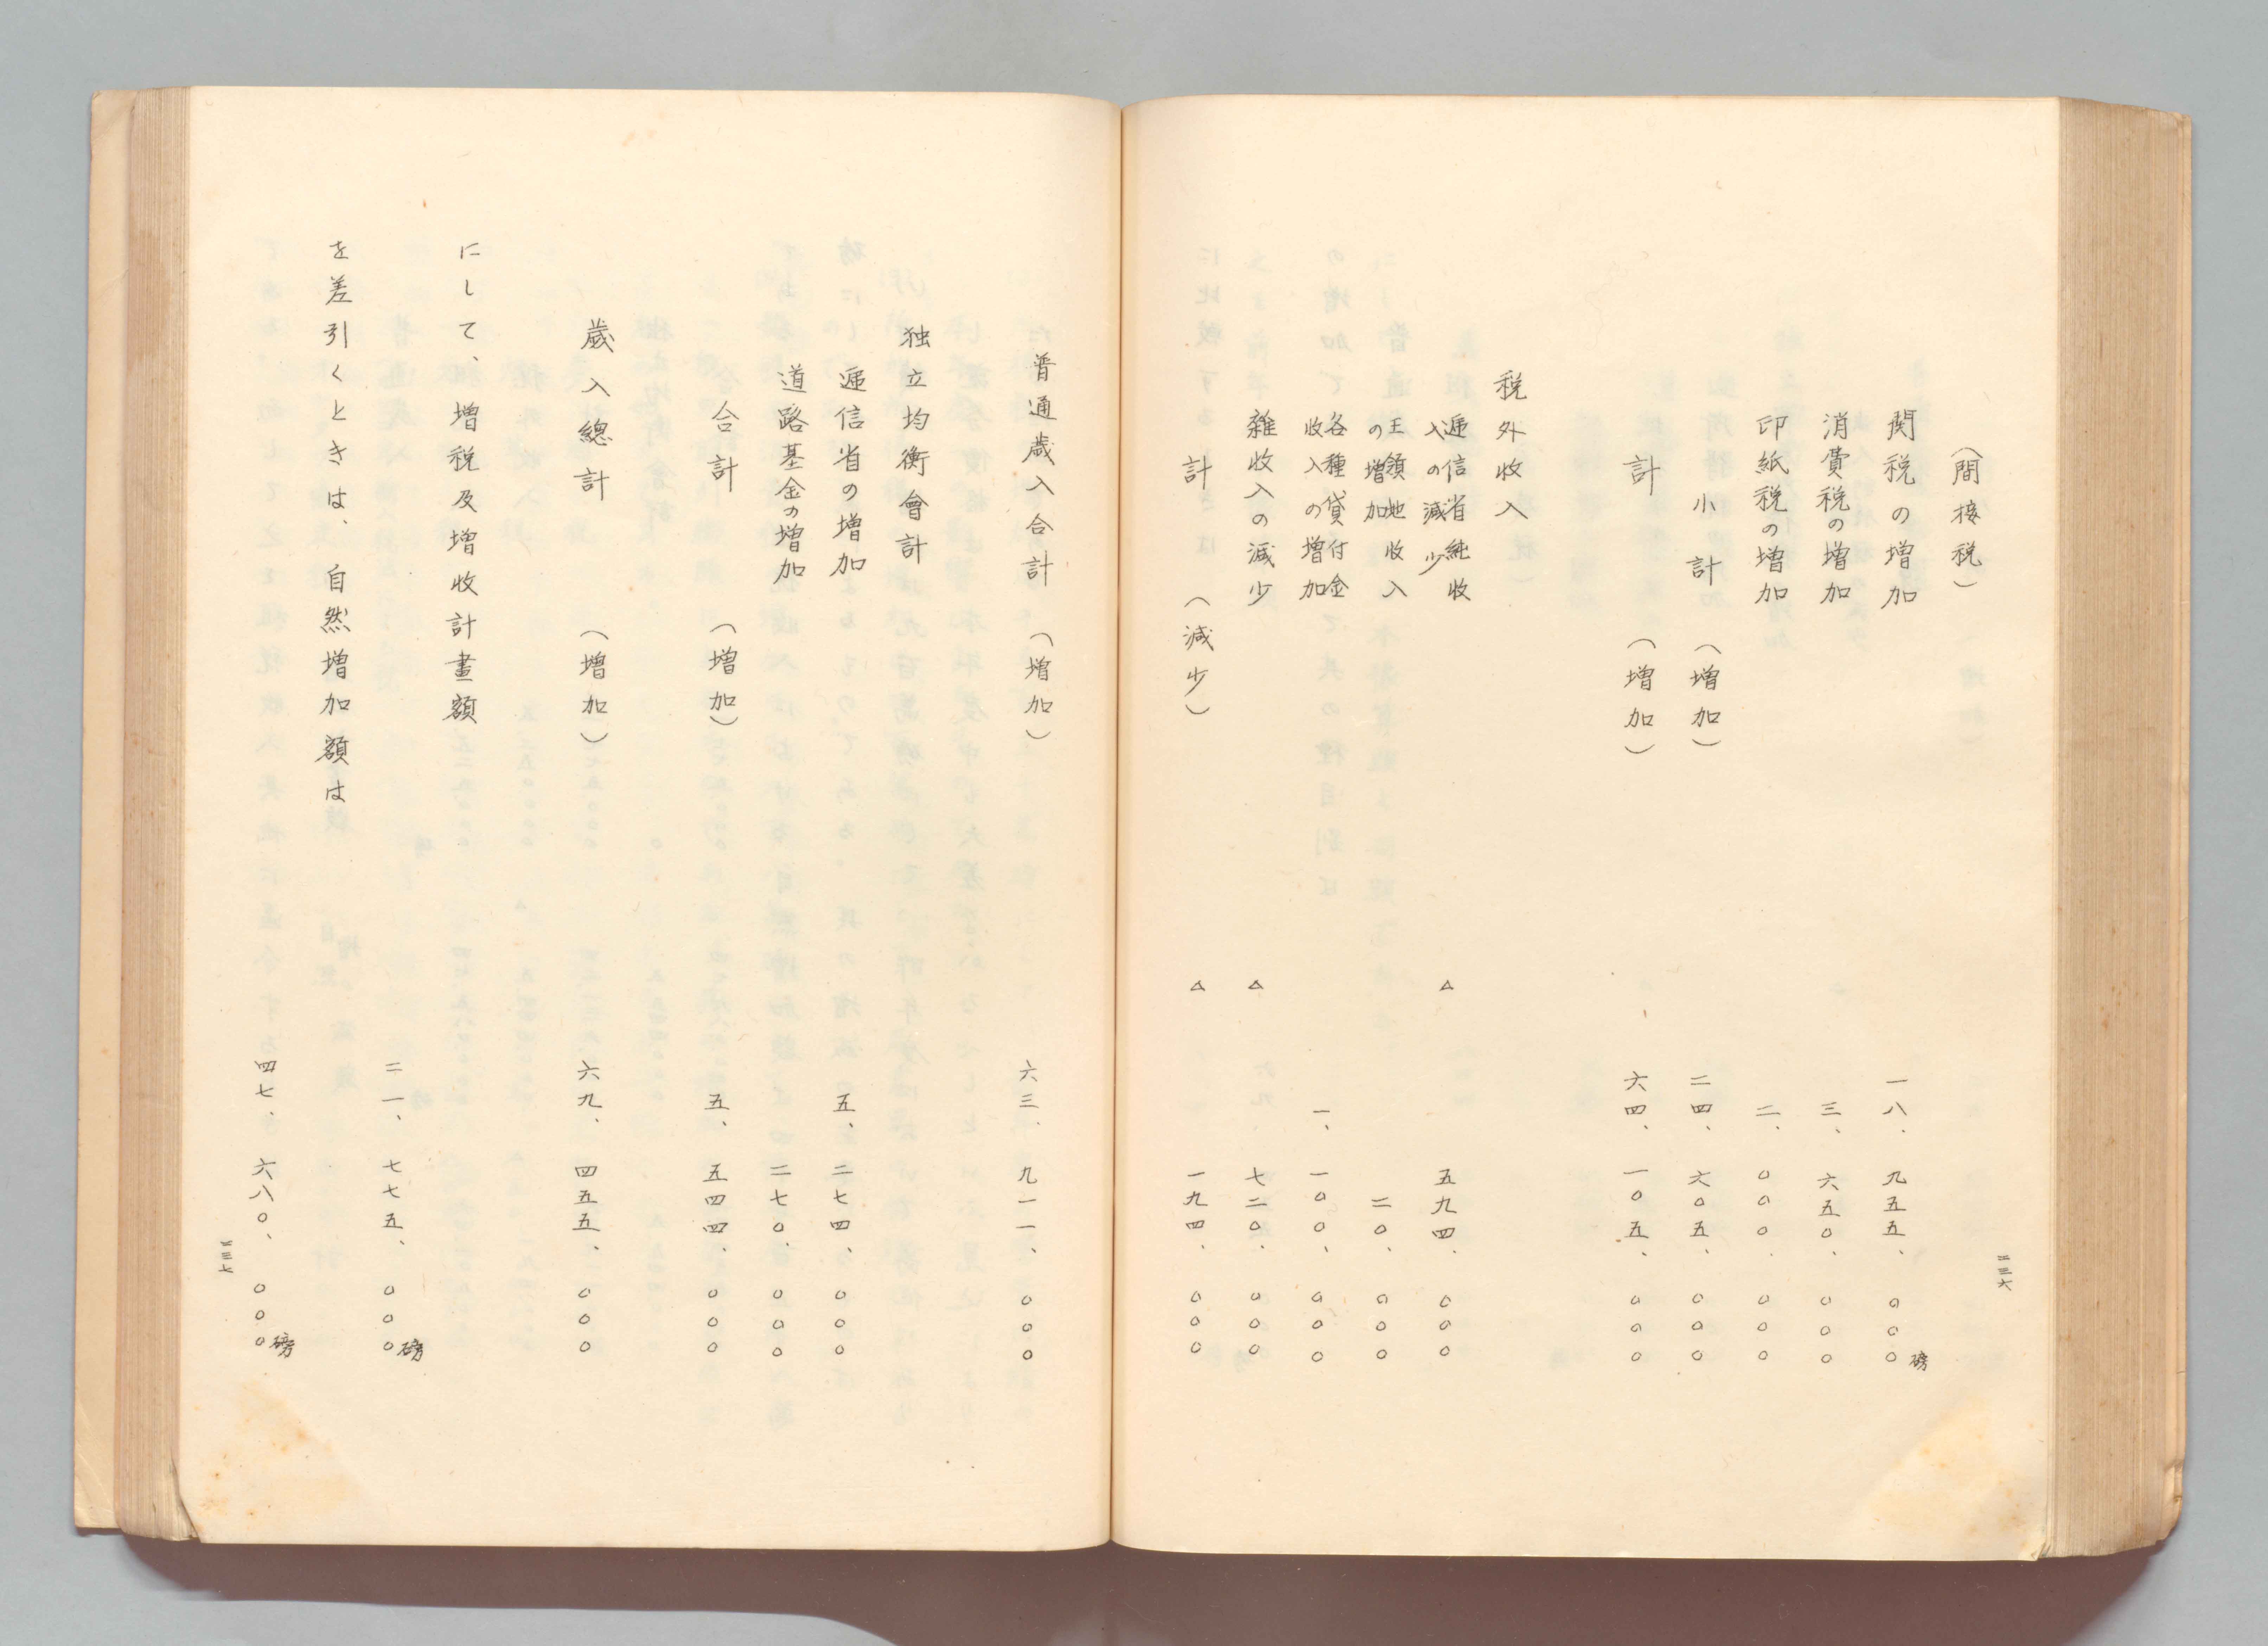 二三六
(間接税)
関税の増加 一八、九五五、〇〇〇磅
消費税の増加 三、六五〇、〇〇〇
印紙税の増加 二、〇〇〇、〇〇〇
小計(増加) 二四、六〇五、〇〇〇
計(増加) 六四、一〇五、〇〇〇
税外收入
逓信省純收入の減少 △ 五九四、〇〇〇
王領地收入の増加 二〇、〇〇〇
各種貸付金收入の増加 一、一〇〇、〇〇〇
雑收入の減少 △ 七二〇、〇〇〇
計(減少) △ 一九四、〇〇〇
普通歳入合計(増加) 六三、九一一、〇〇〇
独立均衡會計
逓信省の増加 五、二七四、〇〇〇
道路基金の増加 二七〇、〇〇〇
合計(増加) 五、五四四、〇〇〇
歳入總計(増加) 六九、四五五、〇〇〇
にして、増税及増收計畫額
二一、七七五、〇〇〇磅
を差引くときは、自然増加額は
四七、六八〇、〇〇〇磅
二三七